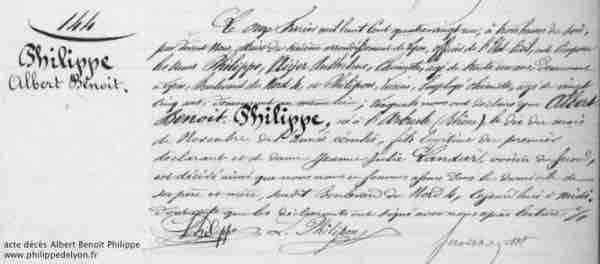 144
Philippe
Albert Benoit.
Le onze Février mil huit cent quatre vingt un, à trois heures du soir,
par devant Nous, Maire du sixième arrondissement de Lyon, officier de l'État Civil, ont comparu
les sieurs Philippe, Nizier Anthelme, Chimiste, âgé de trente un ans, Demeurant
à Lyon, Boulevard du Nord 4, et Philipon, Lucien, employé chimiste, âgé de vingt
cinq ans, lesquels nous ont déclaré que Albert
Benoit Philippe, né à l'Arbresle (Rhône), le dix du mois
de Novembre de l'année dernière, fils légitime du premier
déclarant et de dame Jeanne Julie Landar, est
décédé ainsi que nous nous en sommes assuré Dans le domicile de
ses père et mère, susdit Boulevard du Nord 4, aujourd'hui à midi.
que les déclarants ont signé avec nous après lecture
Philippe L. Philipon
acte décès Albert Benoit Philippe
www.philippedelyon.fr